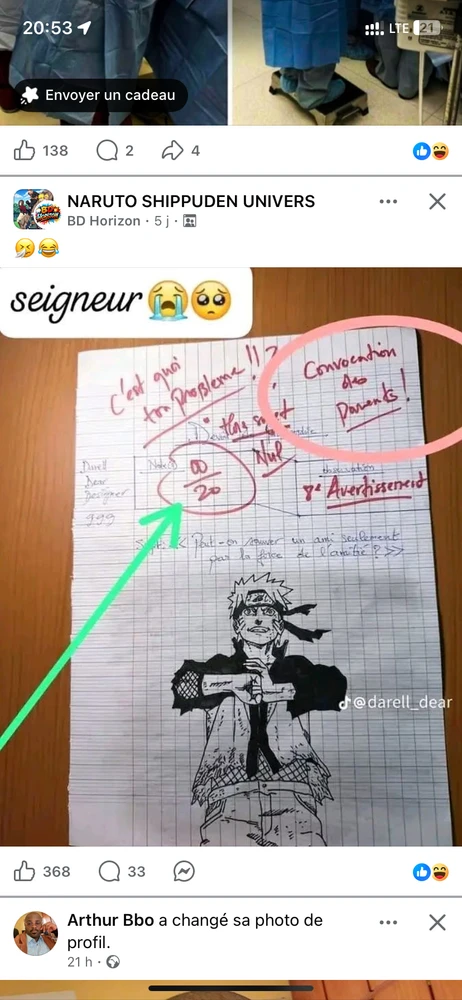 20:53
LTE 21
Envoyer un cadeau
138 2 4
NARUTO SHIPPUDEN UNIVERS
BD Horizon · 5 j ·
🤧😂
seigneur 😭🥺
c'est quoi
ton problème !! ?
Convocation
des
Parents !
Hors sujet
Nul
Darell
Dear
Designer
999
Note
00
20
observation
8e Avertissement
Sujet : << Peut-on sauver un ami seulement
par la force de l'amitié ? >>
@darell_dear
368 33
Arthur Bbo a changé sa photo de
profil.
21 h ·